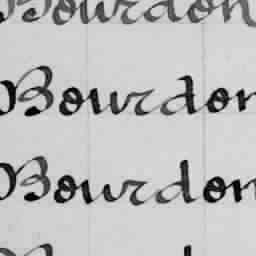 Bourdon
Bourdon
Bourdon